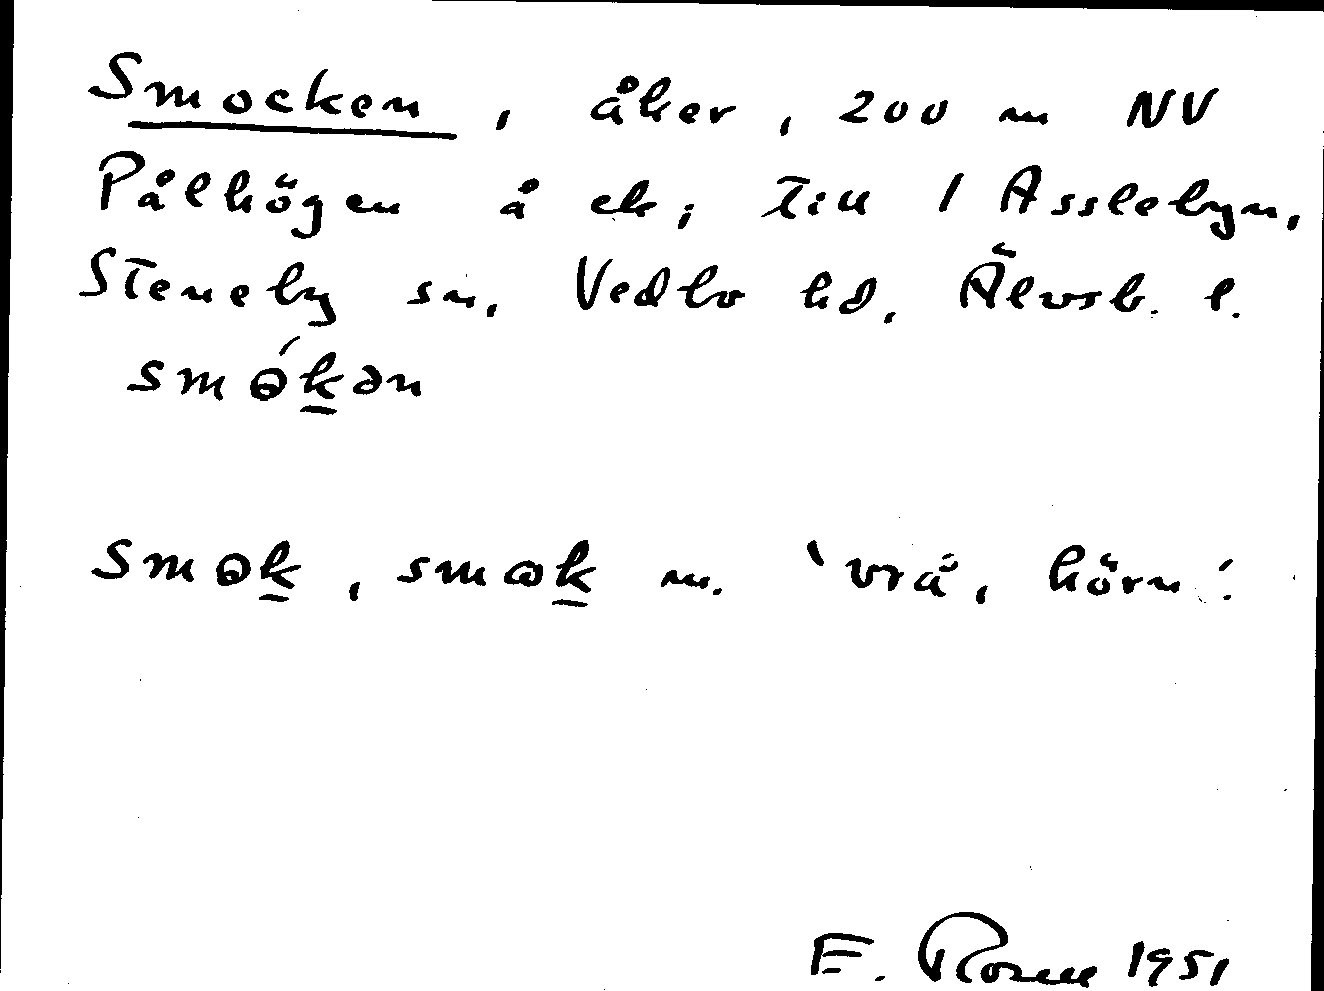 Smocken, åker, 200 m NV
Pålhögen å ek; till 1 Asslebyn,
Steneby sn, Vedbo hd, Älvsb. l.
smɵ́k̲ən
smɵk̲, smɷk̲ m. 'vrå, hörn'.
E. Rosell 1951